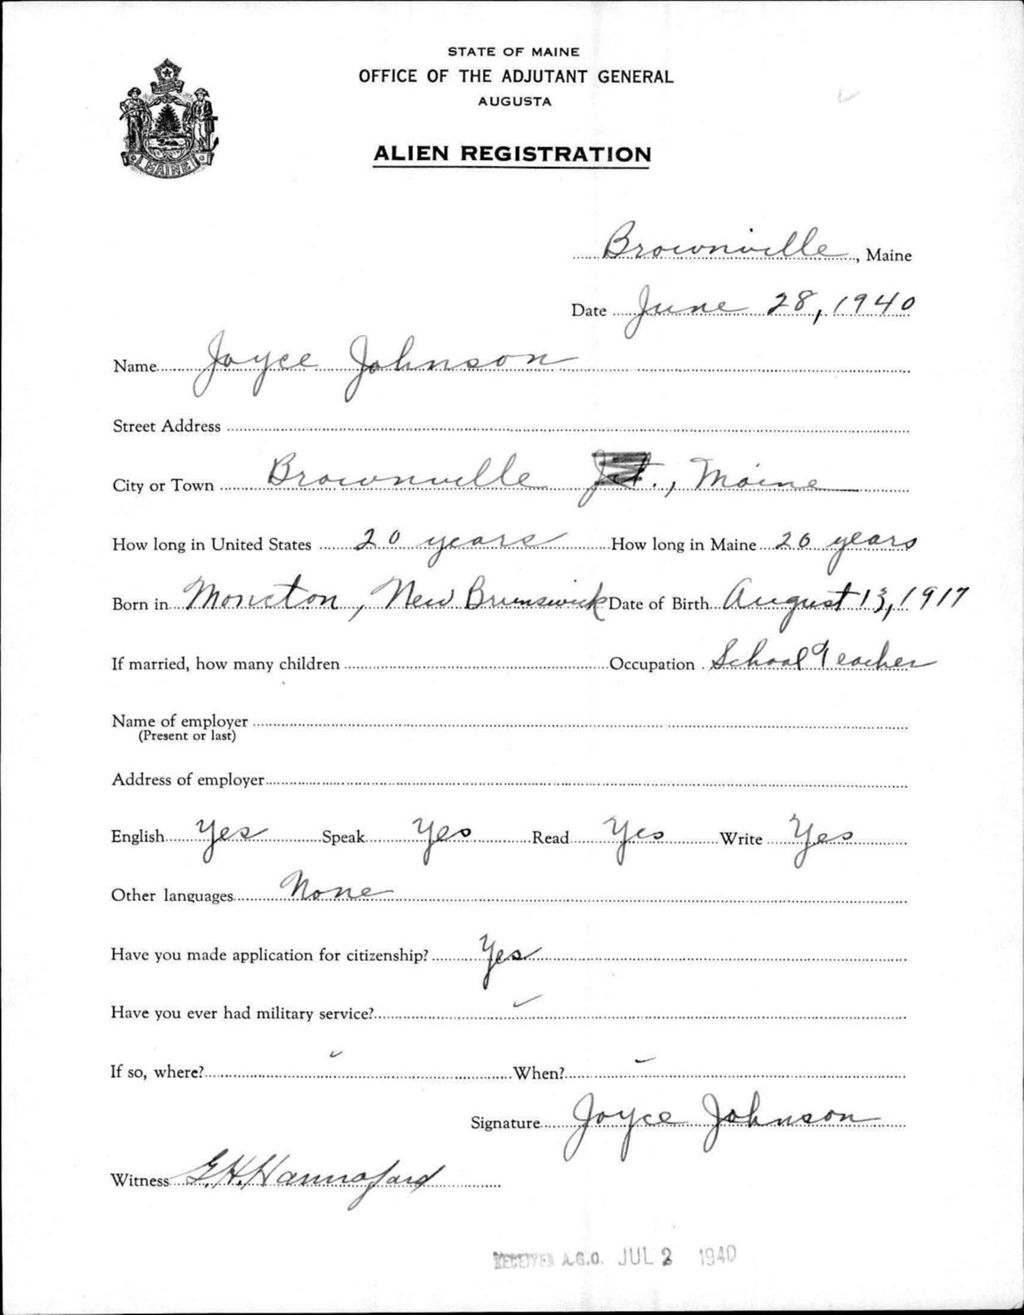 STATE OF MAINE
OFFICE OF THE ADJUTANT GENERAL
AUGUSTA
ALIEN REGISTRATION
MAINE
Brownville, Maine
Date June 28, 1940
Name Joyce Johnson
Street Address
City or Town Brownville Jct., Maine
How long in United States 20 years How long in Maine 20 years
Born in Moncton, New Brunswick Date of Birth August 13, 1917
If married, how many children Occupation School Teacher
Name of employer
(Present or last)
Address of employer
English Yes Speak Yes Read Yes Write Yes
Other languages None
Have you made application for citizenship? Yes
Have you ever had military service?
If so, where? When?
Signature Joyce Johnson
Witness G.H. Hannaford
RECEIVED A.G.O. JUL 2 1940